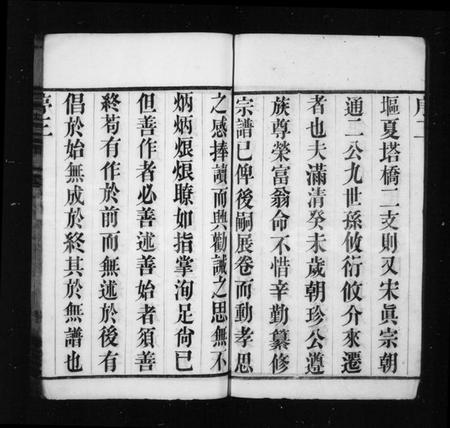 塸夏塔橋二支則又宋眞宗朝
通二公九世孫攸衍攸分來遷
者也夫滿清癸未歲朝珍公遵
族尊榮富翁命不惜辛勤纂修
宗譜已俾後嗣展卷而動孝思
之感捧讀而興勸誡之思無不
炳炳烺烺瞭如指掌洵足尙已
但善作者必善述善始者須善
終苟有作於前而無述於後有
倡於始無成於終其於無譜也
序三